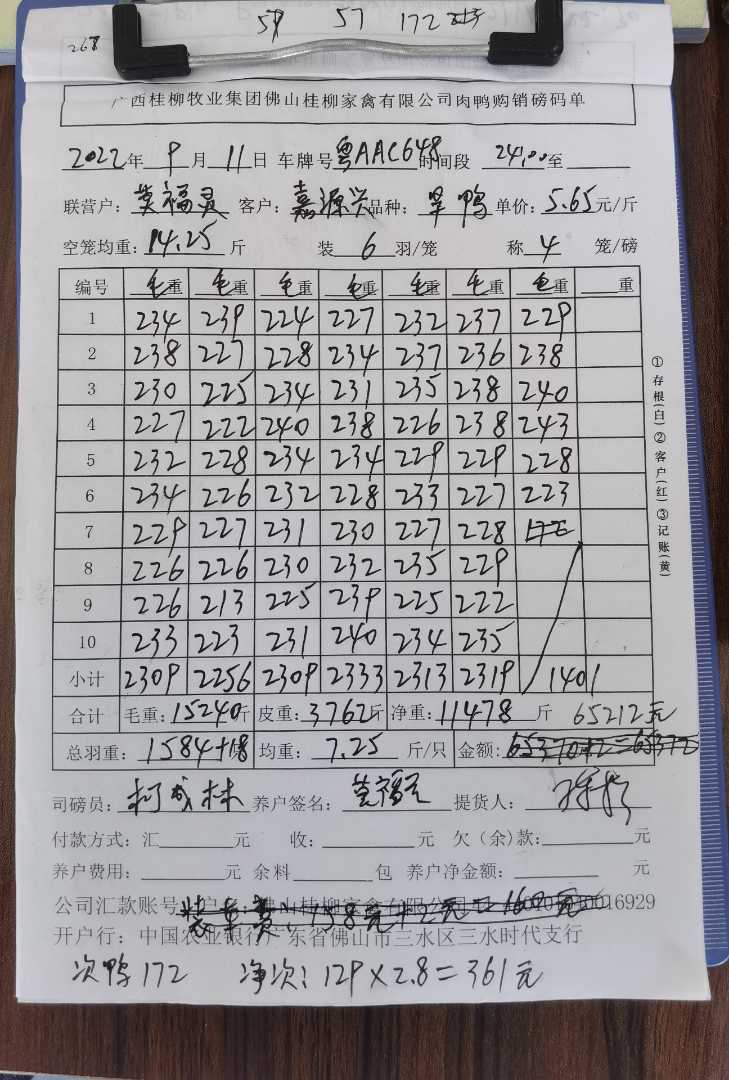 59 57 172
268
广西桂柳牧业集团佛山桂柳家禽有限公司肉鸭购销磅码单
2022年 9月 11日 车牌号 粤AAC648 时间段 24:00至
联营户: 莫福灵 客户: 嘉源兴 品种: 单价: 5.65元/斤
空笼均重: 14.25斤 装 6 羽/笼 称 4 笼/磅
编号 毛重 毛重 毛重 毛重 毛重 毛重 毛重 重
1 234 239 224 227 232 237 229
2 238 227 228 234 237 236 238
3 230 225 234 231 235 238 240
4 227 222 240 238 226 238 243
5 232 228 234 234 229 229 228
6 234 226 232 228 233 227 223
7 229 227 231 230 227 228
8 226 226 230 232 235 229
9 226 213 225 239 225 222
10 233 223 231 240 234 235
小计 2309 2256 2309 2333 2313 2319 1401
合计 毛重: 15240斤 皮重: 3762斤 净重: 11478斤 65212元
总羽重: 1584+18 均重: 7.25 斤/只 金额:
司磅员: 柯成林 养户签名: 莫福灵 提货人:
付款方式: 汇 元 收: 元 欠(余)款: 元
养户费用: 元 余料 包 养户净金额: 元
公司汇款账号 户名: 佛山桂柳家禽有限公司 0016929
开户行: 中国农业银行广东省佛山市三水区三水时代支行
次鸭172 净次: 129×2.8=361元
①存根(白)②客户(红)③记账(黄)